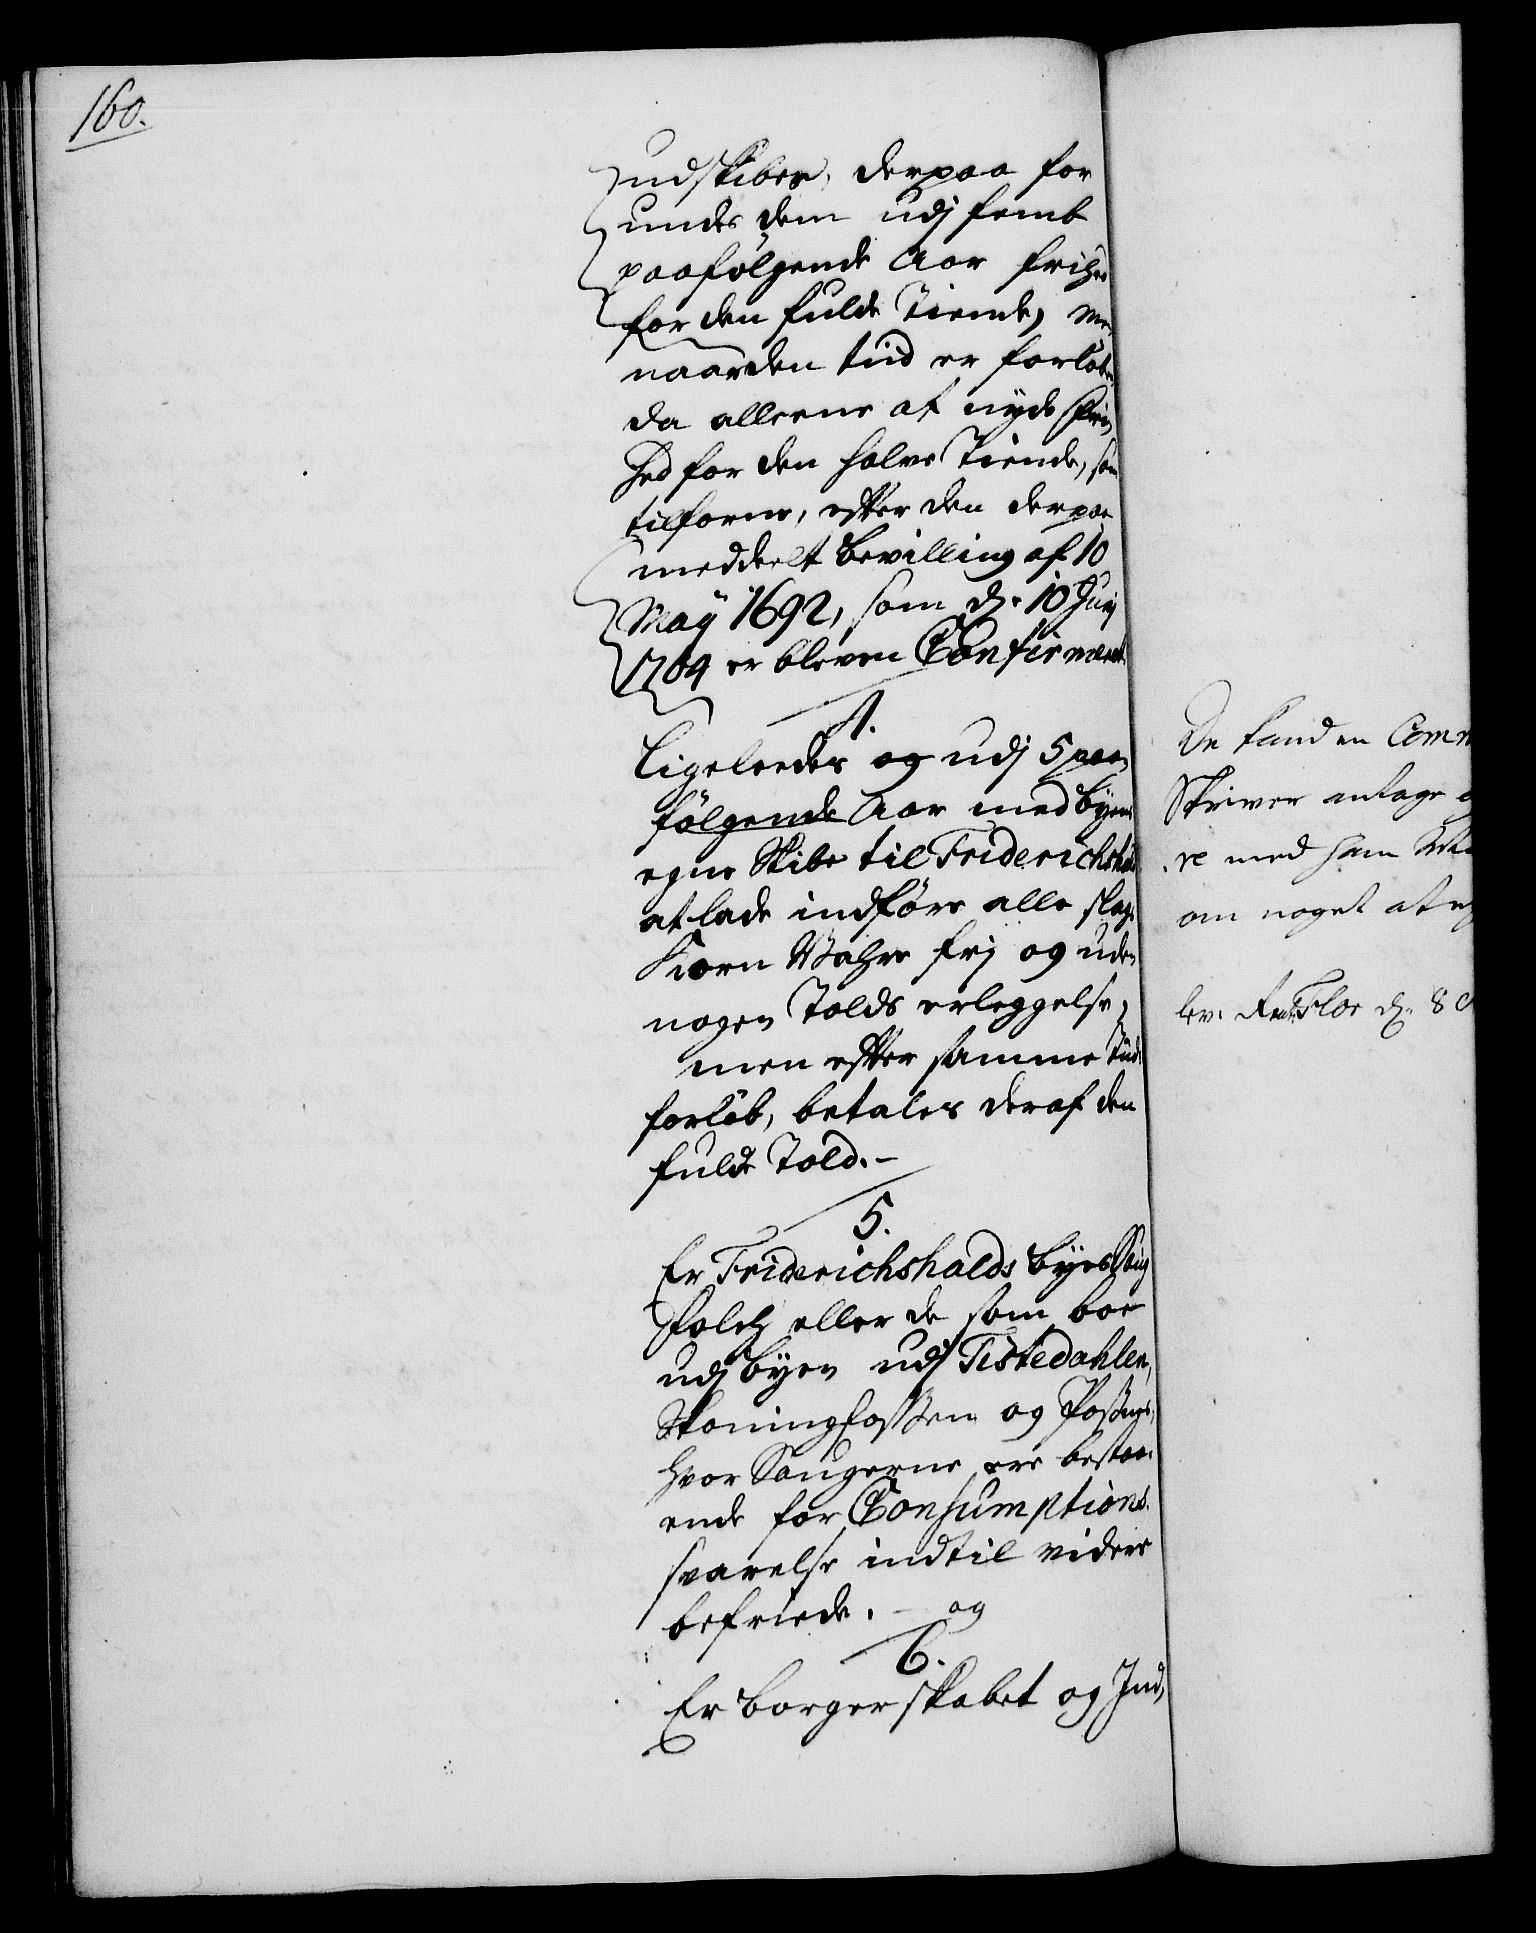 160.
udskiber, derpaa for
undes dem udj femb
paafølgende Aar frihed
for den fulde Tiende, me
naar den tiid er forløben
da alleene at nyde frj
hed for den halve Tiende, som
tilforne, efter den derpaa
meddeelt Bevilling af 10
Maÿ 1692, som d. 10 Junj
1704 er bleven Confirmeret
4.
Ligeleedes og udj 5 paa
følgende Aar med byens
egne Skibe til Friderichshald
at lade indføre alle slags
Korn Wahre frj og uden
nogen Tolds erleggelse,
men efter samme tiids
forløb, betales deraf den
fulde Told.-
5.
Er Friderichshalds byes Saug
folch eller de som boe
udj byen udj Tistedahlen,
Skoningfossen og
hvor Saugerne ere bestaa-
ende for Consumptions
svarelse indtil videre
befriede. - og
6.
Er borgerskabet og Ind,
De fand en Com
Skriver antage
re med ham
om noget at
lev. Floe d. 8